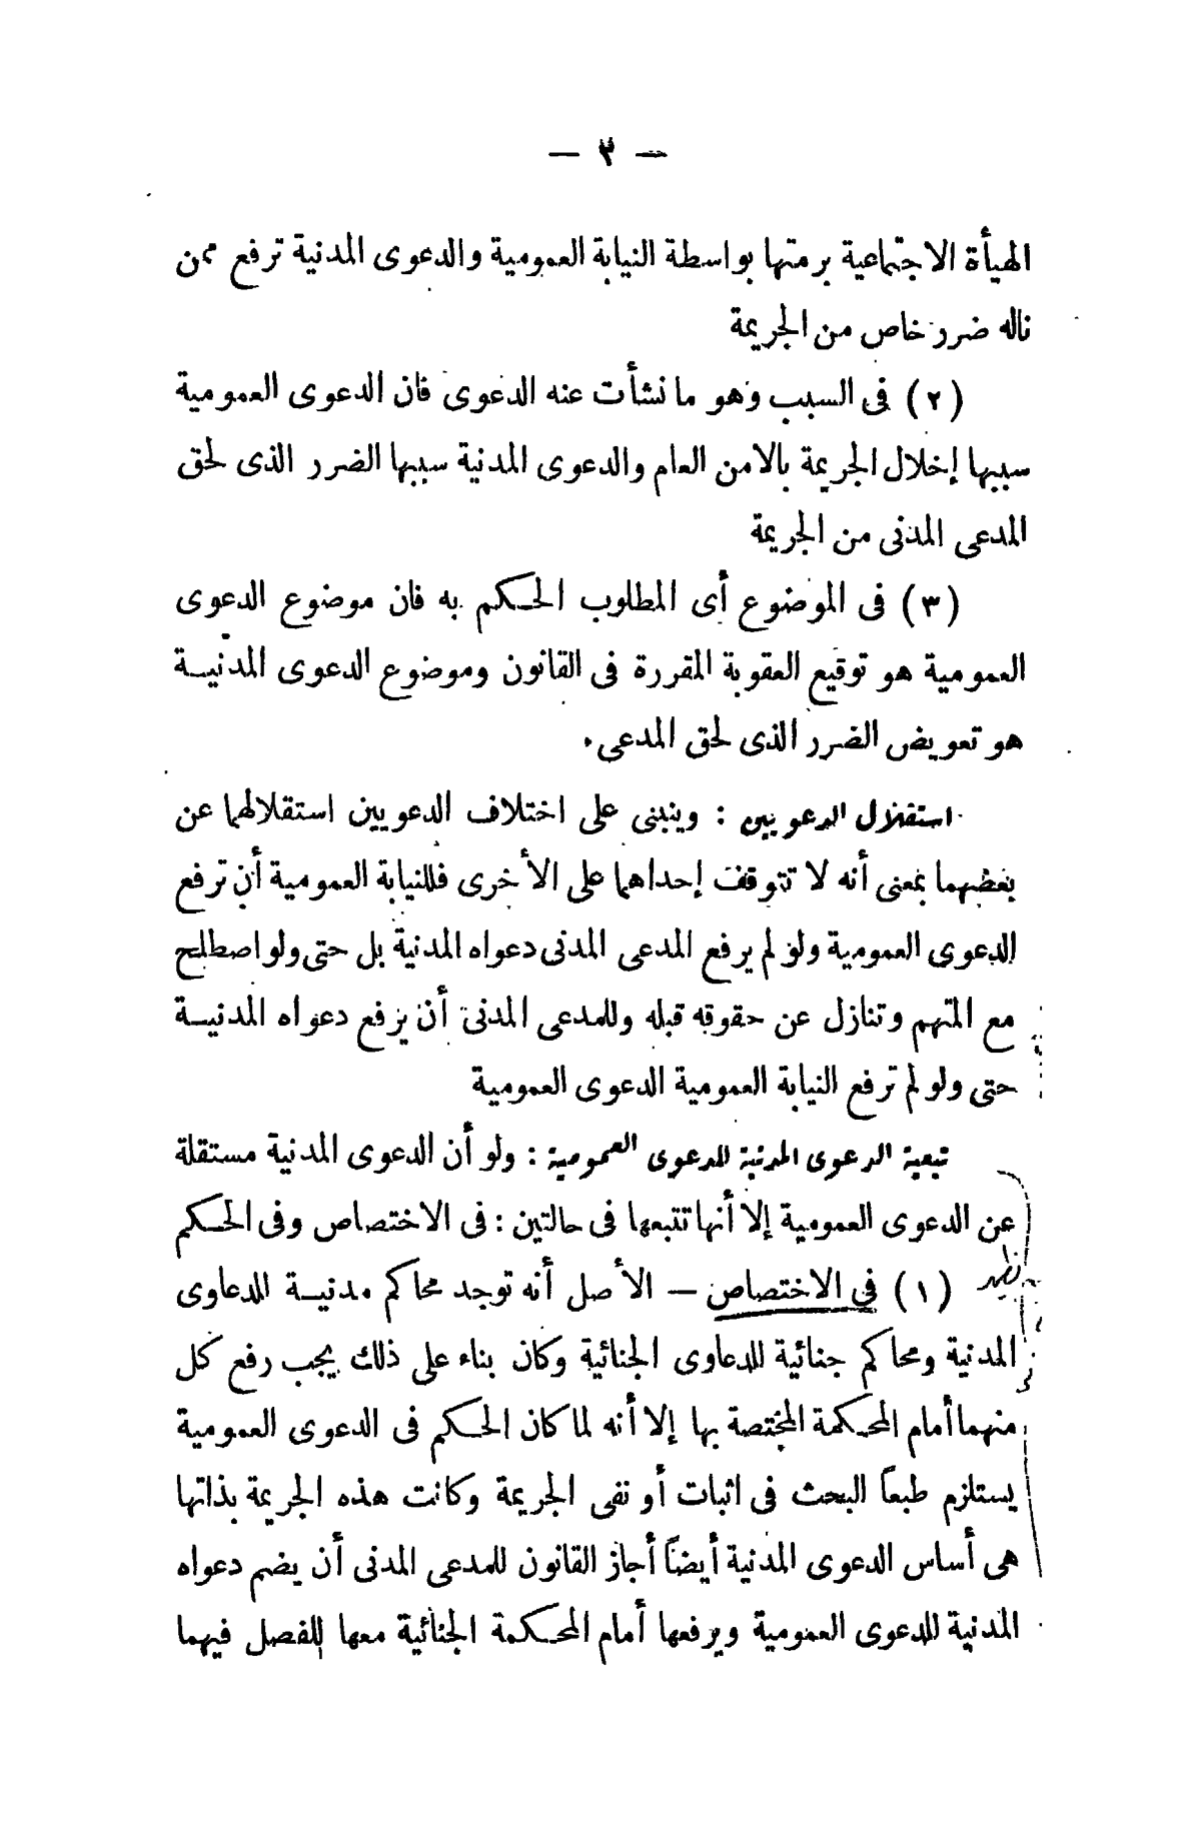 — ٣ —
الهيأة الاجتماعية برمتها بواسطة النيابة العمومية والدعوى المدنية ترفع ممن
ناله ضرر خاص من الجريمة
(٢) فى السبب وهو ما نشأت عنه الدعوى فان الدعوى العمومية
سببها إخلال الجريمة بالامن العام والدعوى المدنية سببها الضرر الذى لحق
المدعى المدنى من الجريمة
(٣) فى الموضوع أى المطلوب الحكم به فان موضوع الدعوى
العمومية هو توقيع العقوبة المقررة فى القانون وموضوع الدعوى المدنية
هو تعويض الضرر الذى لحق المدعى.
استقلال الدعويين : وينبنى على اختلاف الدعويين استقلالهما عن
بعضهما بمعنى أنه لا تتوقف إحداهما على الأخرى فللنيابة العمومية أن ترفع
الدعوى العمومية ولو لم يرفع المدعى المدنى دعواه المدنية بل حتى ولو اصطلح
مع المتهم وتنازل عن حقوقه قبله وللمدعى المدنى أن يرفع دعواه المدنية
حتى ولو لم ترفع النيابة العمومية الدعوى العمومية
تبعية الدعوى المدنية للدعوى العمومية : ولو أن الدعوى المدنية مستقلة
عن الدعوى العمومية إلا أنها تتبعها فى حالتين : فى الاختصاص وفى الحكم
(١) فى الاختصاص — الأصل أنه توجد محاكم مدنية للدعاوى
المدنية ومحاكم جنائية للدعاوى الجنائية وكان بناء على ذلك يجب رفع كل
منهما أمام المحكمة المختصة بها إلا أنه لما كان الحكم فى الدعوى العمومية
يستلزم طبعاً البحث فى اثبات أو نفى الجريمة وكانت هذه الجريمة بذاتها
هى أساس الدعوى المدنية أيضاً أجاز القانون للمدعى المدنى أن يضم دعواه
المدنية للدعوى العمومية ويرفعها أمام المحكمة الجنائية معها للفصل فيهما